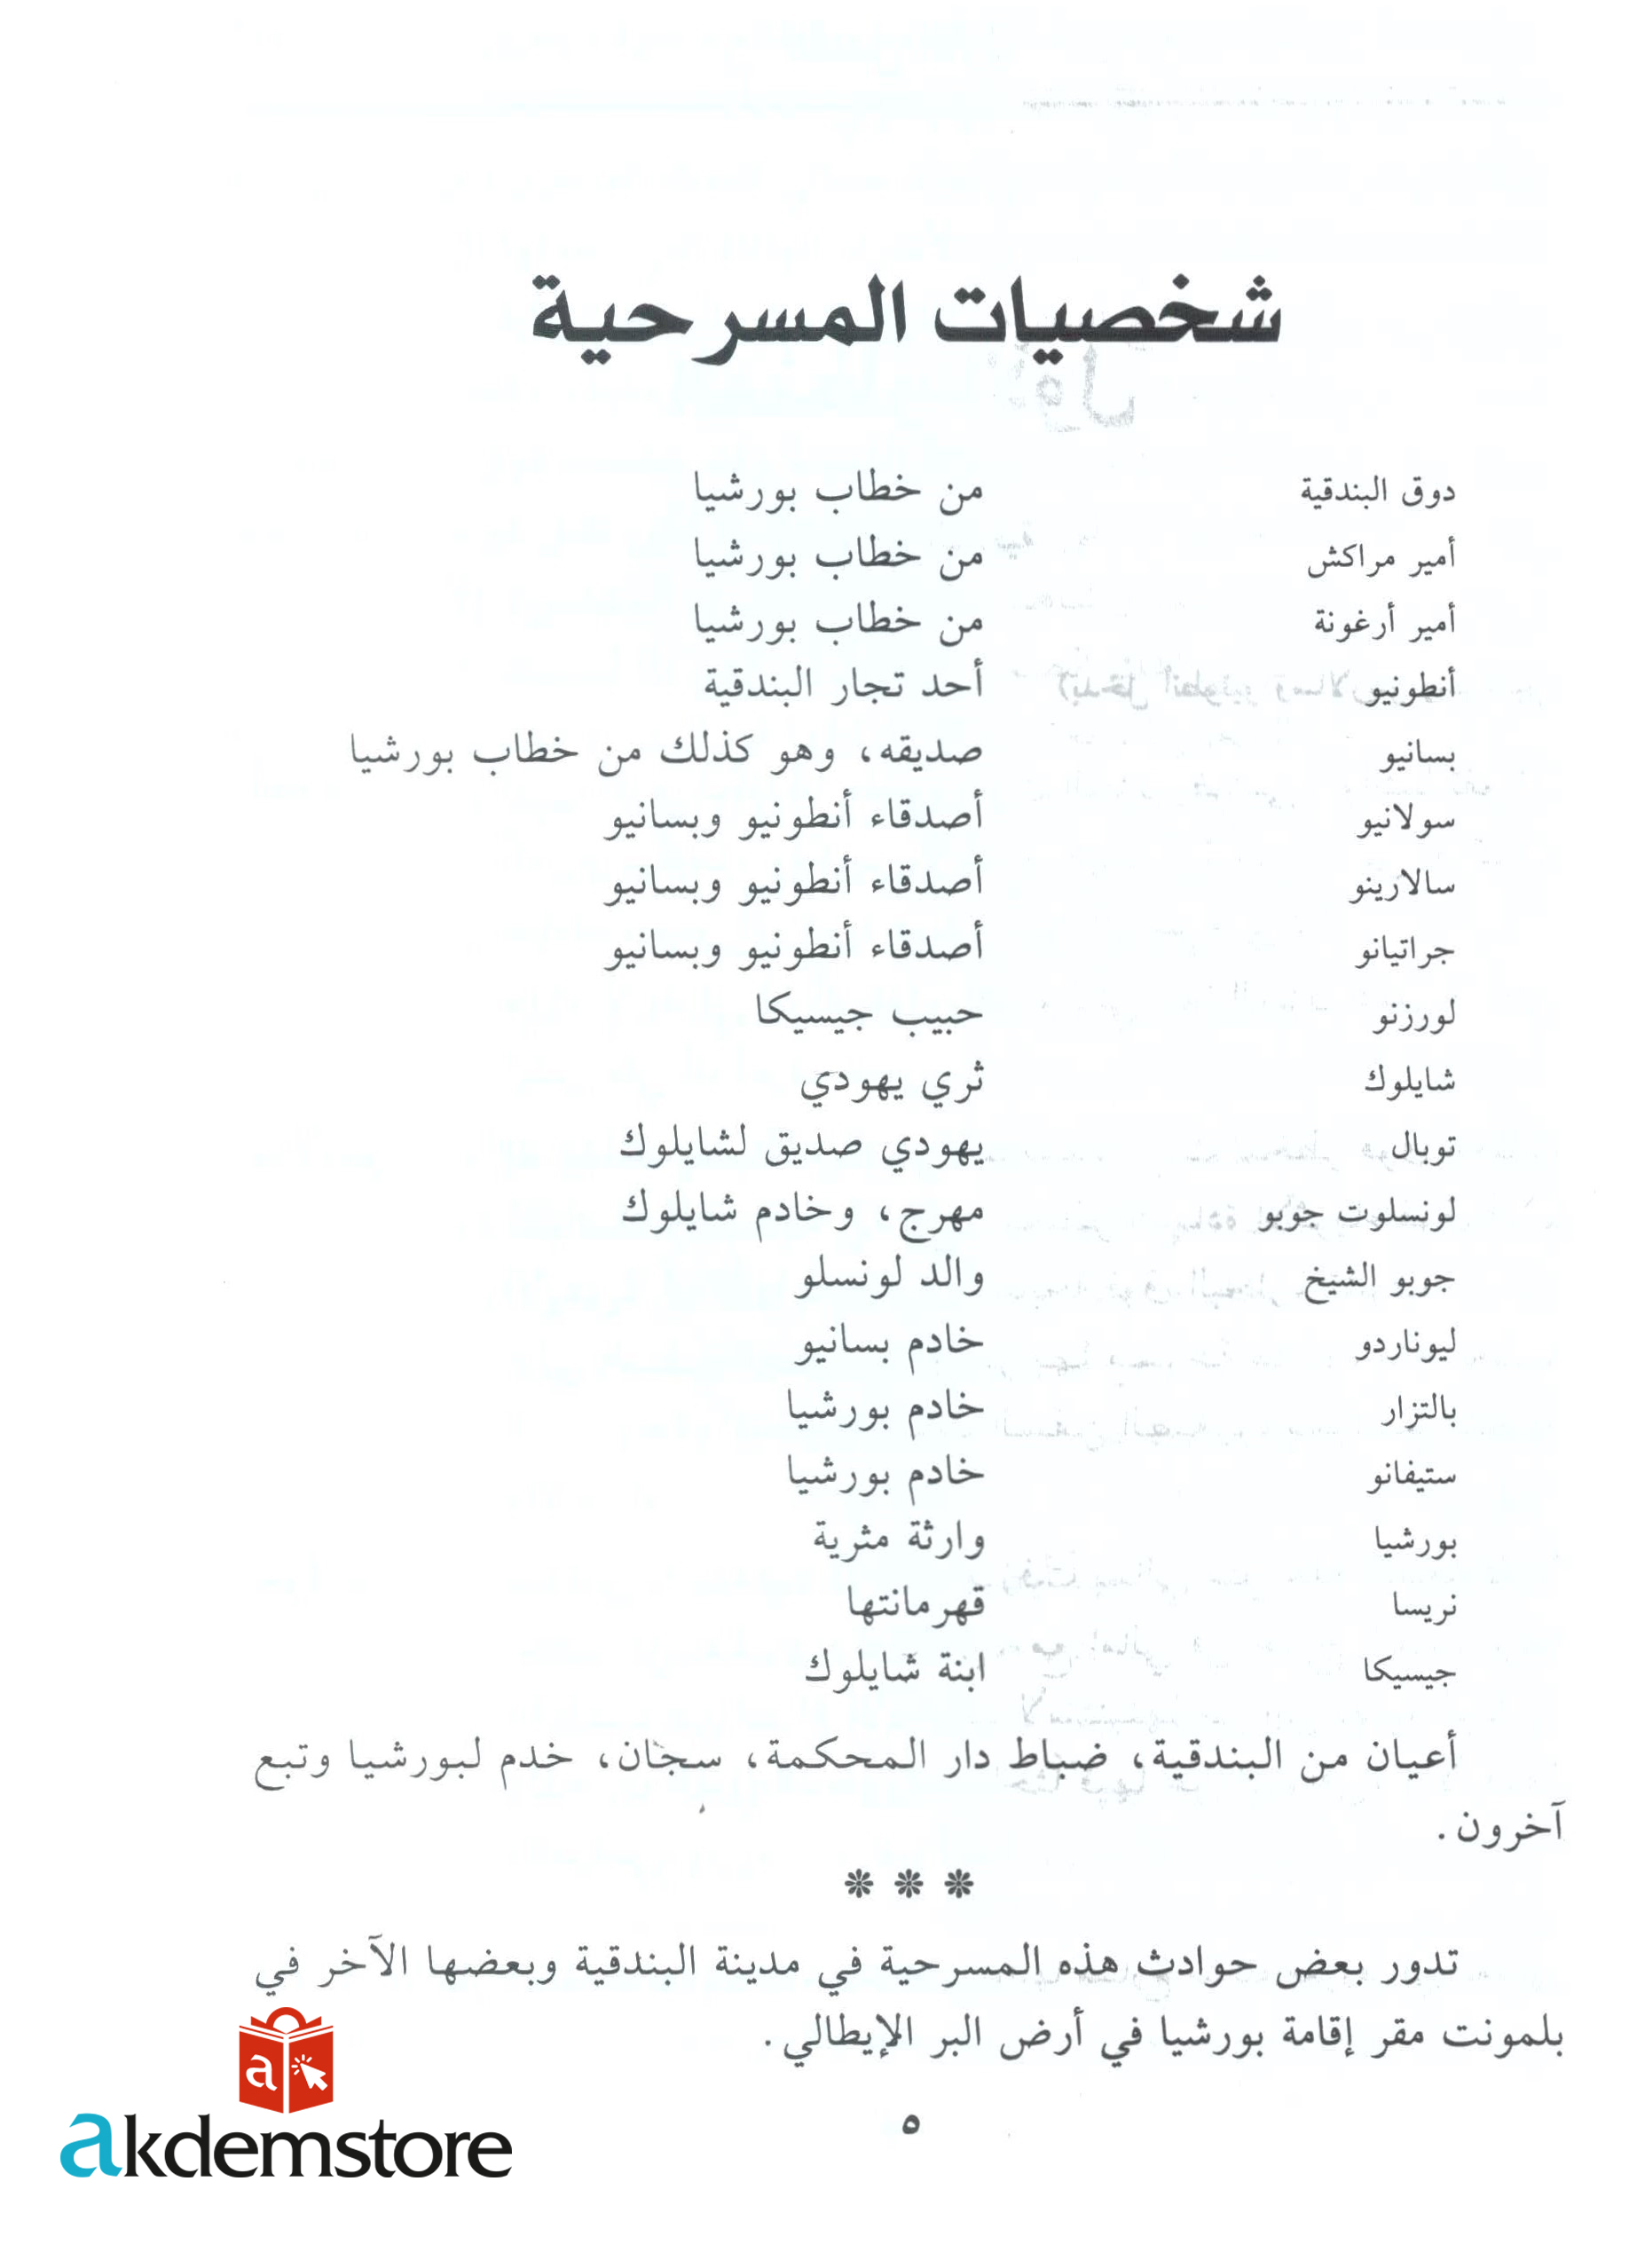 شخصيات المسرحية
دوق البندقية من خطاب بورشيا
أمير مراكش من خطاب بورشيا
أمير أرغونة من خطاب بورشيا
أنطونيو أحد تجار البندقية
بسانيو صديقه، وهو كذلك من خطاب بورشيا
سولانيو أصدقاء أنطونيو وبسانيو
سالارينو أصدقاء أنطونيو وبسانيو
جراتيانو أصدقاء أنطونيو وبسانيو
لورزنو حبيب جيسيكا
شايلوك ثري يهودي
توبال يهودي صديق لشايلوك
لونسلوت جوبو مهرج، وخادم شايلوك
جوبو الشيخ والد لونسلو
ليوناردو خادم بسانيو
بالتزار خادم بورشيا
ستيفانو خادم بورشيا
بورشيا وارثة مثرية
نريسا قهرمانتها
جيسيكا ابنة شايلوك
أعيان من البندقية، ضباط دار المحكمة، سجّان، خدم لبورشيا وتبع
آخرون.
***
تدور بعض حوادث هذه المسرحية في مدينة البندقية وبعضها الآخر في
بلمونت مقر إقامة بورشيا في أرض البر الإيطالي.
٥
a
akdemstore